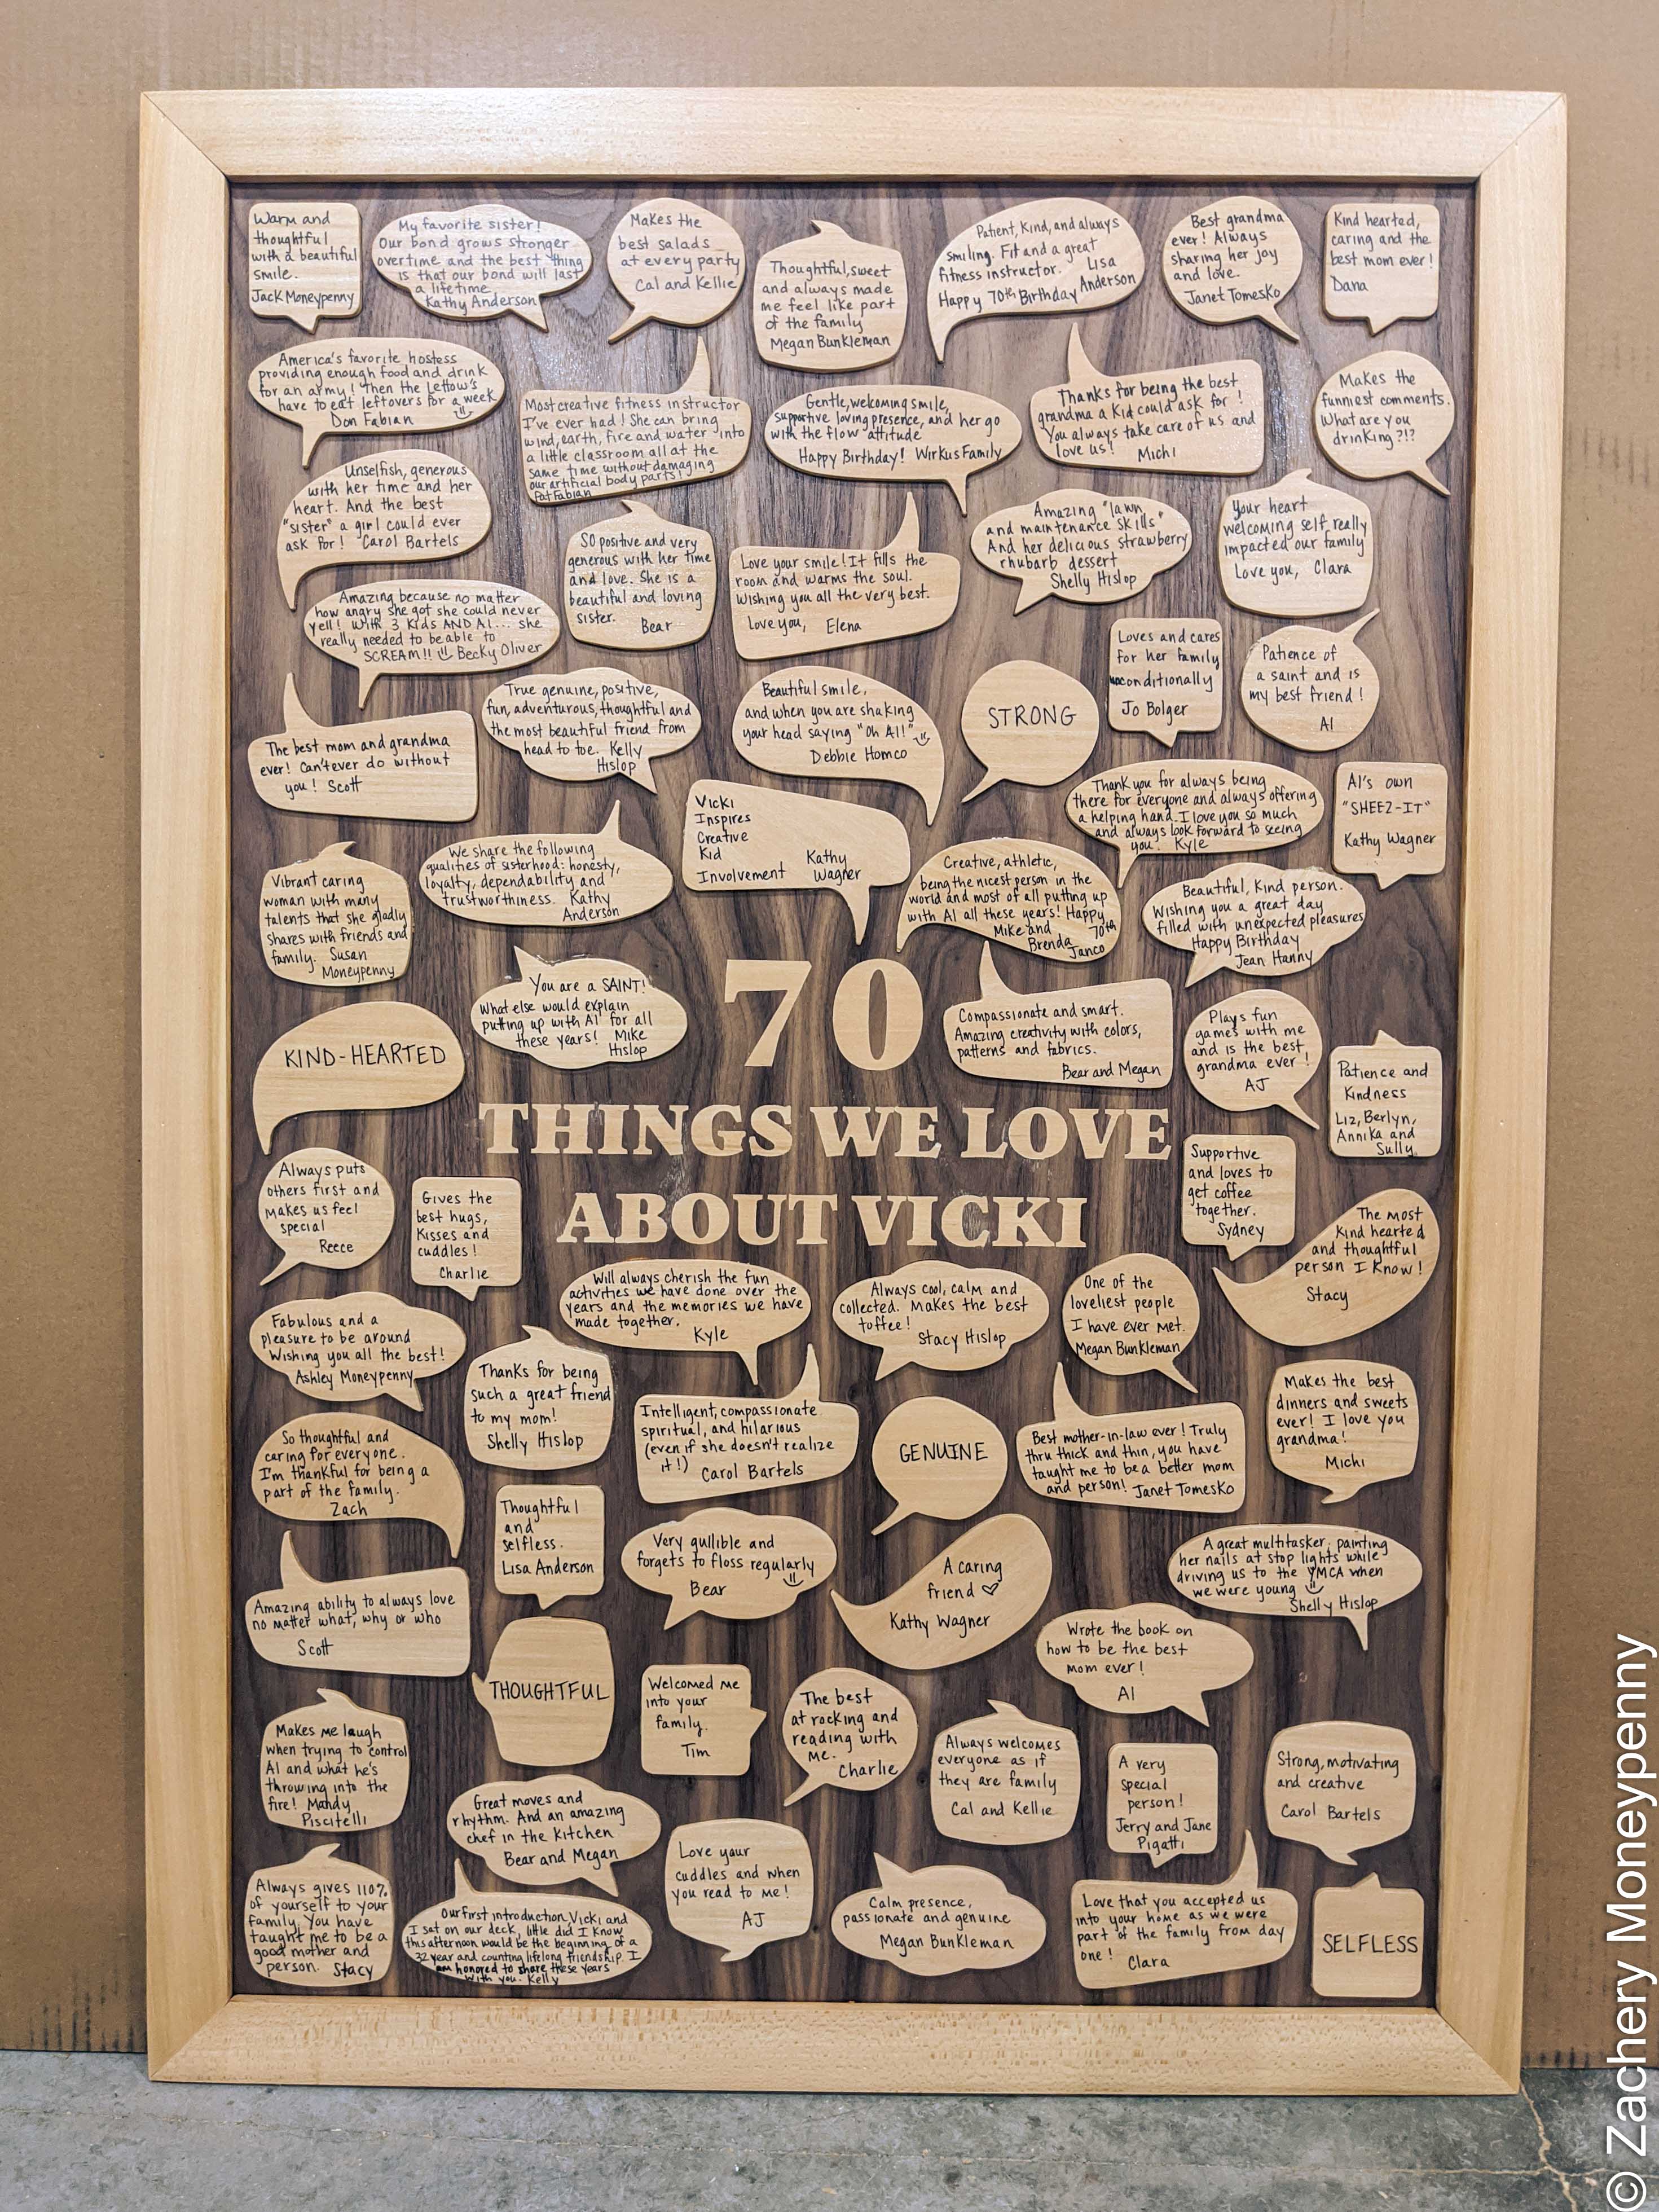 Warm and
thoughtful
with a beautiful
smile.
Jack Moneypenny
My favorite sister!
Our bond grows stronger
overtime and the best thing
is that our bond will last
a lifetime
Kathy Anderson
Makes the
best salads
at every party
Cal and Kellie
Thoughtful, sweet
and always made
me feel like part
of the family
Megan Bunkleman
Patient, Kind, and always
smiling. Fit and a great
fitness instructor. Lisa
Happy 70th Birthday Anderson
Best grandma
ever! Always
sharing her joy
and love.
Janet Tomesko
Kind hearted,
caring and the
best mom ever!
Dana
America's favorite hostess
providing enough food and drink
for an army! Then the Lettow's
have to eat leftovers for a week
Don Fabian
Most creative fitness instructor
I've ever had! She can bring
wind, earth, fire and water into
a little classroom all at the
same time without damaging
our artificial body parts!
Pat Fabian
Gentle, welcoming smile,
supportive loving presence, and her go
with the flow attitude
Happy Birthday! Wirkus Family
Thanks for being the best
grandma a kid could ask for!
You always take care of us and
love us! Michi
Makes the
funniest comments.
What are you
drinking?!?
Unselfish, generous
with her time and her
heart. And the best
"sister" a girl could ever
ask for! Carol Bartels
SO positive and very
generous with her time
and love. She is a
beautiful and loving
sister. Bear
Love your smile! It fills the
room and warms the soul.
Wishing you all the very best.
Love you, Elena
Amazing "lawn
and maintenance skills"
And her delicious strawberry
rhubarb dessert
Shelly Hislop
Your heart
welcoming self really
impacted our family
Love you, Clara
Amazing because no matter
how angry she got she could never
yell! With 3 kids AND Al... she
really needed to be able to
SCREAM!! Becky Oliver
Loves and cares
for her family
unconditionally
Jo Bolger
Patience of
a saint and is
my best friend!
Al
The best mom and grandma
ever! Can't ever do without
you! Scott
True genuine, positive,
fun, adventurous, thoughtful and
the most beautiful friend from
head to toe. Kelly
Hislop
Beautiful smile,
and when you are shaking
your head saying "Oh Al!"
Debbie Homco
STRONG
Vicki
Inspires
Creative
Kid
Involvement
Kathy
Wagner
Thank you for always being
there for everyone and always offering
a helping hand. I love you so much
and always look forward to seeing
you. Kyle
Al's own
"SHEEZ-IT"
Kathy Wagner
Vibrant caring
woman with many
talents that she gladly
shares with friends and
family. Susan
Moneypenny
We share the following
qualities of sisterhood: honesty,
loyalty, dependability and
trustworthiness. Kathy
Anderson
Creative, athletic,
being the nicest person in the
world and most of all putting up
with Al all these years! Happy
70th
Mike and
Brenda
Janco
Beautiful, Kind person.
Wishing you a great day
filled with unexpected pleasures
Happy Birthday
Jean Hanny
KIND-HEARTED
You are a SAINT!
What else would explain
putting up with Al for all
these years! Mike
Hislop
70
THINGS WE LOVE
ABOUT VICKI
Compassionate and smart.
Amazing creativity with colors,
patterns and fabrics.
Bear and Megan
Plays fun
games with me
and is the best
grandma ever!
AJ
Patience and
Kindness
Liz, Berlyn,
Annika and
Sully
Always puts
others first and
makes us feel
special
Reece
Gives the
best hugs,
kisses and
cuddles!
Charlie
Supportive
and loves to
get coffee
together.
Sydney
The most
kind hearted
and thoughtful
person I know!
Stacy
Fabulous and a
pleasure to be around
Wishing you all the best!
Ashley Moneypenny
Will always cherish the fun
activities we have done over the
years and the memories we have
made together.
Kyle
Always cool, calm and
collected. Makes the best
toffee!
Stacy Hislop
One of the
loveliest people
I have ever met.
Megan Bunkleman
Thanks for being
such a great friend
to my mom!
Shelly Hislop
Intelligent, compassionate
spiritual, and hilarious
(even if she doesn't realize
it!) Carol Bartels
GENUINE
Best mother-in-law ever! Truly
thru thick and thin, you have
taught me to be a better mom
and person! Janet Tomesko
Makes the best
dinners and sweets
ever! I love you
grandma!
Michi
So thoughtful and
caring for everyone.
I'm thankful for being a
part of the family.
Zach
Thoughtful
and
selfless.
Lisa Anderson
Very gullible and
forgets to floss regularly
Bear
A caring
friend ♡
Kathy Wagner
A great multitasker, painting
her nails at stop lights while
driving us to the YMCA when
we were young
Shelly Hislop
Amazing ability to always love
no matter what, why or who
Scott
THOUGHTFUL
Welcomed me
into your
family.
Tim
The best
at rocking and
reading with
me.
Charlie
Wrote the book on
how to be the best
mom ever!
Al
Makes me laugh
when trying to control
Al and what he's
throwing into the
fire! Mandy
Piscitelli
Great moves and
rhythm. And an amazing
chef in the kitchen
Bear and Megan
Always welcomes
everyone as if
they are family
Cal and Kellie
A very
special
person!
Jerry and Jane
Pigatti
Strong, motivating
and creative
Carol Bartels
Always gives 110%
of yourself to your
family. You have
taught me to be a
good mother and
person. Stacy
Our first introduction, Vicki and
I sat on our deck, little did I know
this afternoon would be the beginning of a
32 year and counting lifelong friendship. I
am honored to share these years
with you. Kelly
Love your
cuddles and when
you read to me!
AJ
Calm presence,
passionate and genuine
Megan Bunkleman
Love that you accepted us
into your home as we were
part of the family from day
one!
Clara
SELFLESS
© Zachery Moneypenny